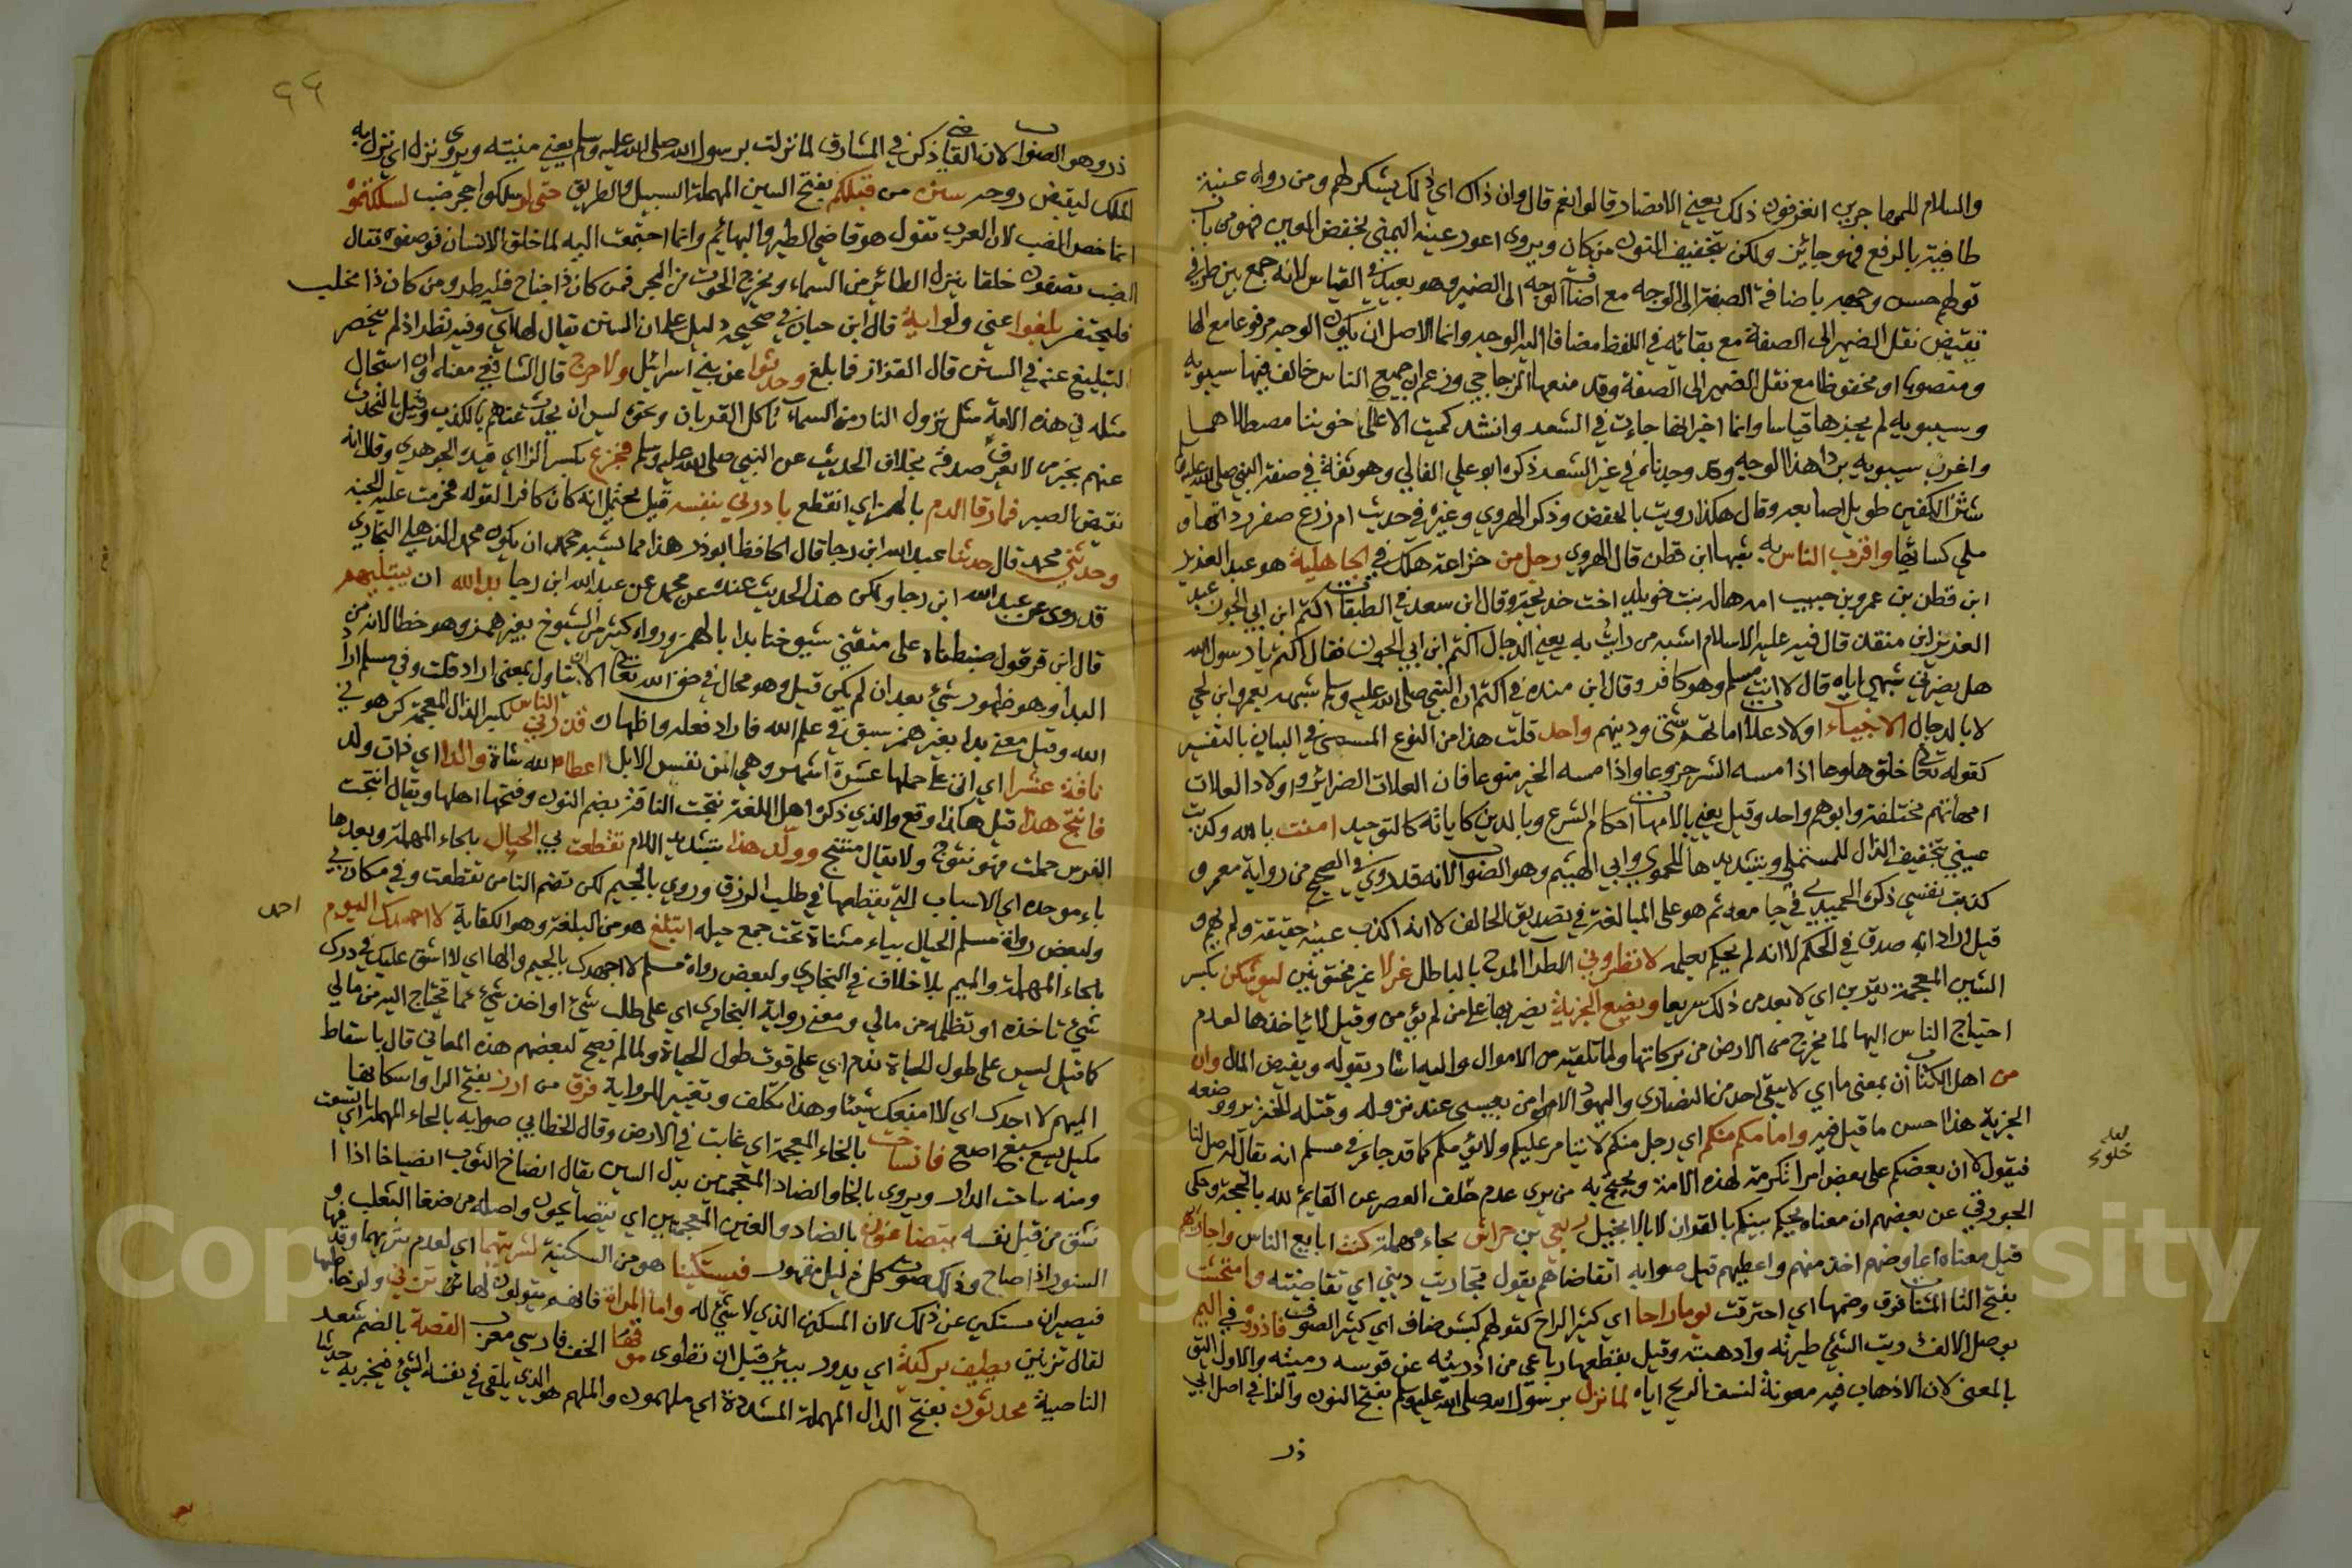 والسلام للمهاجرين اتعرفون ذلك يعني الانصار قالوا نعم قال وان ذاك اي ذلك يشكر لهم ومن رواه عنبة
طافية بالرفع فهو جائز ولكن بتخفيف النون من كان ويروى اعور عينه اليمنى بخفض العين فهو من باب
قولهم حسن وجهه باضافة الصفة الى الوجه مع اضافة الوجه الى الضمير وهو بعيد في القياس لانه جمع بين طرفي
نقيض نقل الضمير الى الصفة مع بقائه في اللفظ مضافا اليه الوجه وانما الاصل ان يكون الوجه مرفوعا مع الها
ومنصوبا او مخفوظا مع نقل الضمير الى الصفة وقد منعها الزجاجي وزعم ان جميع الناس خالف فيها سيبويه
وسيبويه لم يجزها قياسا وانما اخبر انها جاءت في الشعر وانشد كميت الاعالي خونتنا مصطلاهما
واغرب سيبويه برد هذا الوجه وقد وجدناه في غير الشعر ذكره ابو علي القالي وهو ثقة في صفة النبي صلى الله عليه وسلم
شثن الكفين طويل اصابعه وقال هكذا رويت بالخفض وذكر الهروي وغيره في حديث ام زرع صفر ردائها و
ملي كسائها واقرب الناس به شبها ابن قطن قال الزهري رجل من خزاعة هلك في الجاهلية هو عبد العزيز
ابن قطن بن عمرو بن حبيب امه هالة بنت خويلد اخت خديجة وقال ابن سعد في الطبقات اكثم ابن ابي الجون عبد
العزيز ابن منقذ قال فيه عليه الاسلام اشبه من رايت به يعني الدجال اكثم ابن ابي الجون فقال اكثم يا رسول الله
هل يضرني شبهي اياه قال لا انت مسلم وهو كافر وقال ابن منده في اكثم ان النبي صلى الله عليه وسلم شبهه بعمرو ابن لحي
لا بالدجال الانبياء اولاد علات امهاتهم شتى ودينهم واحد قلت هذا من النوع المسمى في البيان بالتفسير
كقوله تعالى خلق هلوعا اذا مسه الشر جزوعا واذا مسه الخير منوعا فان العلات الضرائر واولاد العلات
امهاتهم مختلفة وابوهم واحد وقيل يعني بالامهات احكام الشرع وبالدين كليّاته كالتوحيد امنت بالله وكذبت
عيني بتخفيف الذال للمستملي وبتشديدها للحموي وابي الهيثم وهو الصواب لانه قد روي في الصحيح من رواية معمر و
كذبت نفسي ذكره الحميدي في جامعه ثم هو على المبالغة في تصديق الحالف لا انه اكذب عينه حقيقة ولم يهم و
قيل اراد انه صدق في الحكم لا انه لم يحكم بعلمه لا تطروني الطرا المدح بالباطل غرلا غير مختونين ليوشكن بكسر
الشين المعجمة يقربن اي لا بعد من ذلك سريعا ويضع الجزية يضربها على من لم يؤمن وقيل لا ياخذها لعدم
احتياج الناس اليها لما تخرج من الارض من بركاتها ولما تلقيه من الاموال واليه اشار بقوله ويفيض المال وان
من اهل الكتاب ان بمعنى ما اي لا يبقى احد من النصارى واليهود الا من بعيسى عند نزوله وقتله الخنزير ووضعه
الجزية هذا احسن ما قيل فيه وامامكم منكم اي رجل منكم لا يتامر عليكم ولا يؤمكم كما قد جاء في مسلم انه يقال له صل لنا
فيقول لا ان بعضكم على بعض امرا تكرمة لهذه الامة ويحتج به من يرى عدم خلف العصر عن القايم لله بالحجة وحكى
الجوزقي عن بعضهم ان معناه يحكم بينكم بالقران لا بالانجيل ربعي بن حراش بحاء مهملة كنت ابايع الناس واجازيهم
قيل معناه اعاوضهم اخذ منهم واعطيهم قيل صوابه اتقاضاهم يقول تجاريت ديني اي تقاضيته وامتحشت
بفتح التا المثناة فوق وضمها اي احترقت يوما راحا اي كثير الراح كقولهم كبش صاف اي كثير الصوف فاذروه في اليم
بوصل الالف ذريت الشيء طيرته واذهبته وقيل بقطعها رباعي من اذريته عن قوسه رميته والاول اليق
بالمعنى لان الاذهاب فيه معونة لنسف الريح اياه لما نزل برسول الله صلى الله عليه وسلم بفتح النون والزاي في اصل ابي
ذر
لعله
خلوع
٩٩
ذر وهو الصواب لان القاضي ذكر في المشارق لما نزلت برسول الله صلى الله عليه وسلم يعني منيته ويروى نزل اي نزل به
الملك ليقبض روحه سنن من قبلكم بفتح السين المهملة السبيل والطريق حتى لو سلكوا جحر ضب لسلكتموه
انما خص الضب لان العرب تقول هو قاضي الطير والبهائم وانما اجتمعت اليه لما خلق الانسان فوصفوه له فقال
الضب تصفون خلقا ينزل الطائر من السماء ويخرج الحوت من البحر فمن كان ذا جناح فليطر ومن كان ذا مخلب
فليحتفر بلغوا عني ولو اية قال ابن حبان في صحيحه دليل على ان السنن يقال لها اي وفيه نظر اذ لم ينحصر
التبليغ عنه في السنن قال القزاز فما بلغ وحدثوا عن بني اسرائيل ولا حرج قال الشافعي معناه وان استحال
مثله في هذه الامة مثل نزول النار من السماء تاكل القربان ونحوه ليس ان يحدث عنهم بالكذب وقيل بالتحدث
عنهم بخبر من لا يعرف صدقه بخلاف الحديث عن النبي صلى الله عليه وسلم فجزع بكسر الزاي قيده الجوهري وقال انه
نقيض الصبر فما رقا الدم بالهمز اي انقطع بادرني بنفسه قيل يحتمل انه كان كافرا لقوله فحرمت عليه الجنة
وحدثني محمد قال حدثنا عبد الله ابن رجا قال الحافظ ابو ذر هذا مما يشبه محمد ان يكون محمد الذهلي البخاري
قد روى عن عبد الله ابن رجا ولكن هذا الحديث عنده عن محمد عن عبد الله ابن رجا بدا لله ان يبتليهم
قال ابن قرقول ضبطناه على متقني شيوخنا بدا بالهمز ورواه كثير من الشيوخ بغير همز وهو خطا لانه من
البدا وهو ظهور شيء بعد ان لم يكن قبل وهو محال في حق الله تعالى الا ان يتاول بمعنى اراد قلت وفي مسلم اراد
الله وقيل معنى بدا بغير همز سبق في علم الله فاراد فعله واظهاره قذرني الناس بكسر الذال المعجمة كرهوني
ناقة عشرا اي اتى على حملها عشرة اشهر وهي من نفس الابل اعطاه الله شاة والدا اي ذات ولد
فانتج هذا قيل هكذا وقع والذي ذكره اهل اللغة نتجت الناقة بضم النون وفتحها اهلها ويقال انتجت
الفرس حملت فهو نتوج ولا يقال منتج وولد هذا بتشديد اللام تقطعت بي الحبال بالحاء المهملة وبعدها
باء موحدة اي الاسباب التي يقطعها في طلب الرزق وروي بالجيم لكن تضم التا من تقطعت وفي مكان بي
ولبعض رواة مسلم الحيال بياء مثناة تحت جمع حيلة اتبلغ هو من البلغة وهو الكفاية لا احمدك اليوم
بالحاء المهملة والميم بلا خلاف في البخاري ولبعض رواة مسلم لا اجهدك بالجيم والها اي لا اشق عليك في درك
شيء تاخذه او تطلبه من مالي ومعنى رواية البخاري اي على طلب شيء او اخذ شيء مما تحتاج اليه من مالي
كما قيل ليس على طول الحياة ندم اي على فوت طول الحياة ولما لم تصح لبعضهم هذه المعاني قال باسقاط
الميم لا احدك اي لا امنعك شيئا وهذا تكلف وتغيير للرواية فرق من ارز بفتح الرا واسكانها
مكيل يسع اصع فانساخت بالخاء المعجمة اي غابت في الارض وقال الخطابي صوابه بالحاء المهملة اي اتسعت
ومنه ساحت الدار ويروى بالخا والصاد المعجمتين بدل السين يقال انصاخ الثوب انصياخا اذا ا
نشق من قبل نفسه يتضاغون بالضاد والغين المعجمتين اي يتصايحون واصله من ضغا الثعلب و
السنور اذا صاح وذلك صوت كل ذليل مقهور فيستكينا هو من السكنة لشربتهما اي لعدم شربهما وقد
فيصيران مستكين عن ذلك لان المسكين الذي لا شيء له واما المراة فانهم يقولون لها تزني ولو خاطبها
لقال تزنين يطيف بركية اي يدور ببئر قبل ان تطوى موقها الخف فارسي معرب القصة بالضم شعر
الناصية محدثون بفتح الدال المهملة المشددة اي ملهمون والملهم هو الذي يلقى في نفسه الشيء فيخبر به حدثا
احمد